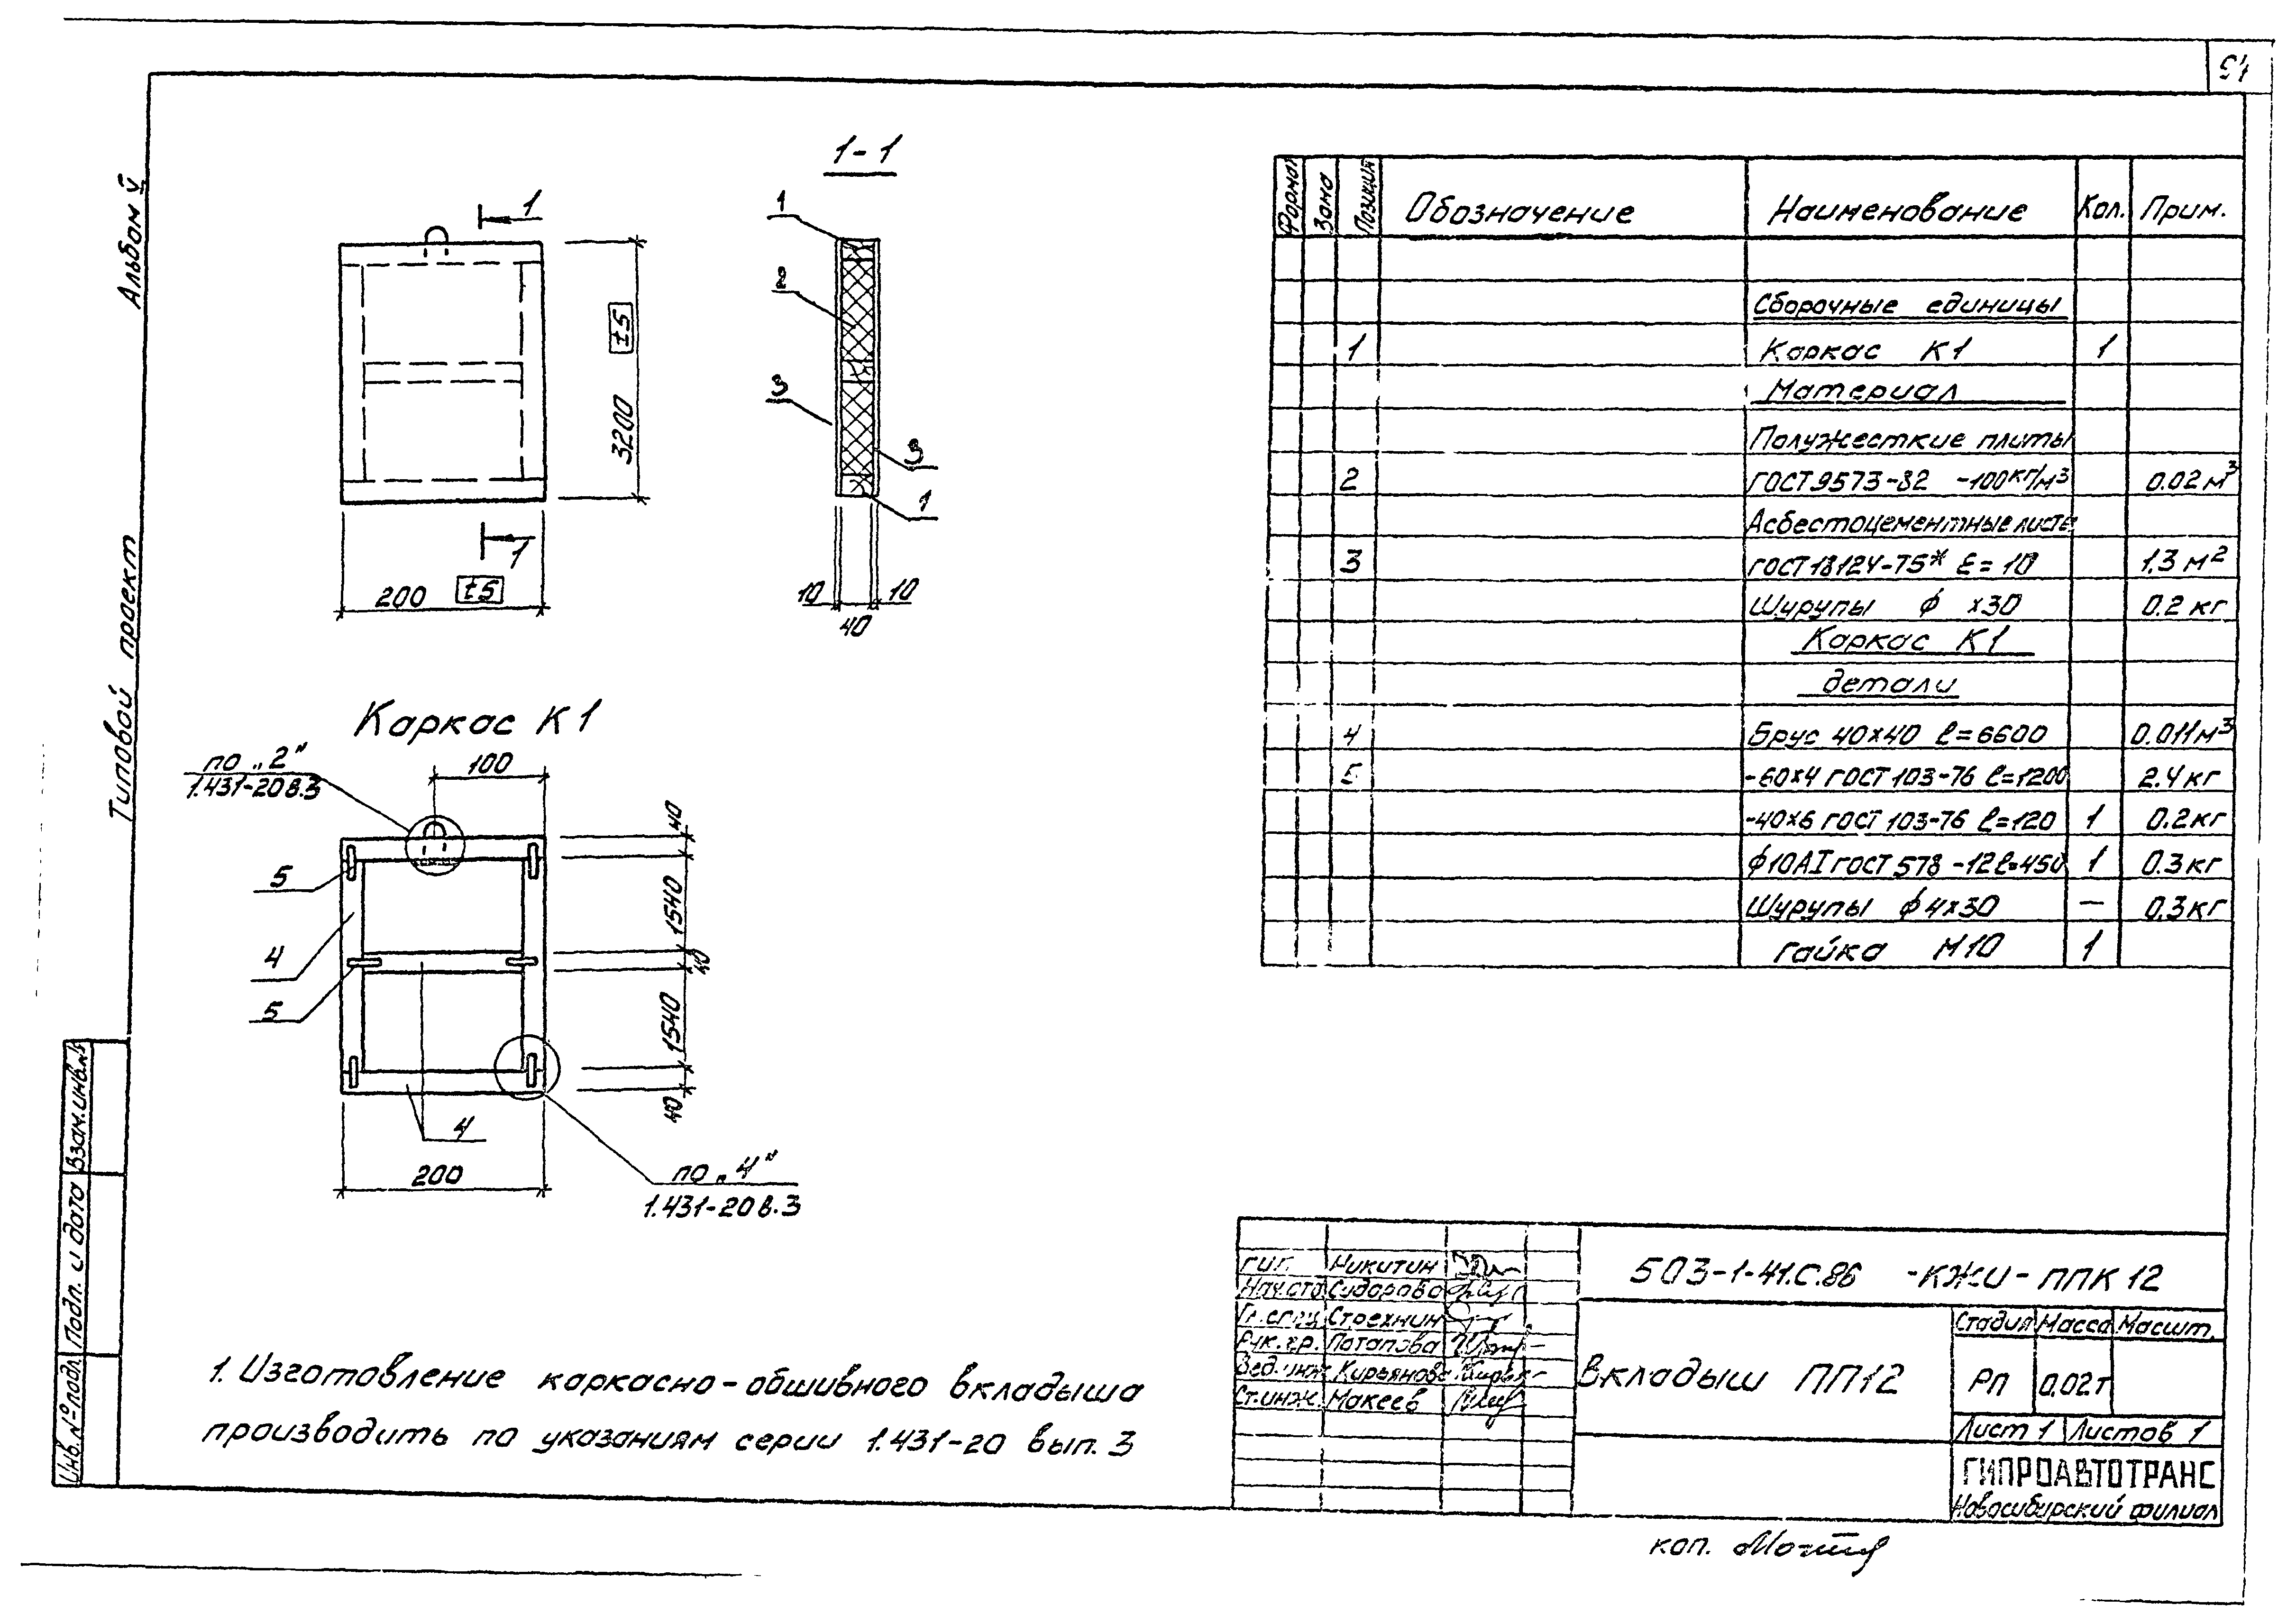 Альбом V
Типовой проект
Взам.инв.№
Подп. и дата
Инв.№подл.
1
3200
±5
1
200 ±5
1-1
1
2
3
3
1
10
10
40
Каркас К1
по „2"
1.431-20в.3
100
40
5
1540
4
40
5
1540
40
4
200
по „4"
1.431-20в.3
1. Изготовление каркасно-обшивного вкладыша
производить по указаниям серии 1.431-20 вып. 3
Формат Зона Позиция Обозначение Наименование Кол. Прим.
Сборочные единицы
1 Каркас К1 1
Материал
Полужесткие плиты
2 ГОСТ 9573-82 -100кг/м³ 0.02 м³
Асбестоцементные листы
3 ГОСТ 18124-75* Е=10 1.3 м²
Шурупы ф х30 0.2 кг
Каркас К1
детали
4 Брус 40х40 ℓ=6600 0.011м³
5 -60х4 ГОСТ 103-76 ℓ=1200 2.4 кг
-40х6 ГОСТ 103-76 ℓ=120 1 0.2кг
ф10АI ГОСТ 578 -12ℓ=450 1 0.3кг
Шурупы ф4х30 — 0.3кг
гайка М10 1
503-1-41.С.86 -КЖИ-ППК12
ГИП. Никитин
Нач.сто Сидорова
Гл.спец Стрехнин
Рук.гр. Потапова
Вед.инж Кирьянова
Ст.инж. Макеев
Вкладыш ПП12
Стадия Масса Масшт.
РП 0.02т
Лист 1 Листов 1
ГИПРОАВТОТРАНС
Новосибирский филиал
коп.